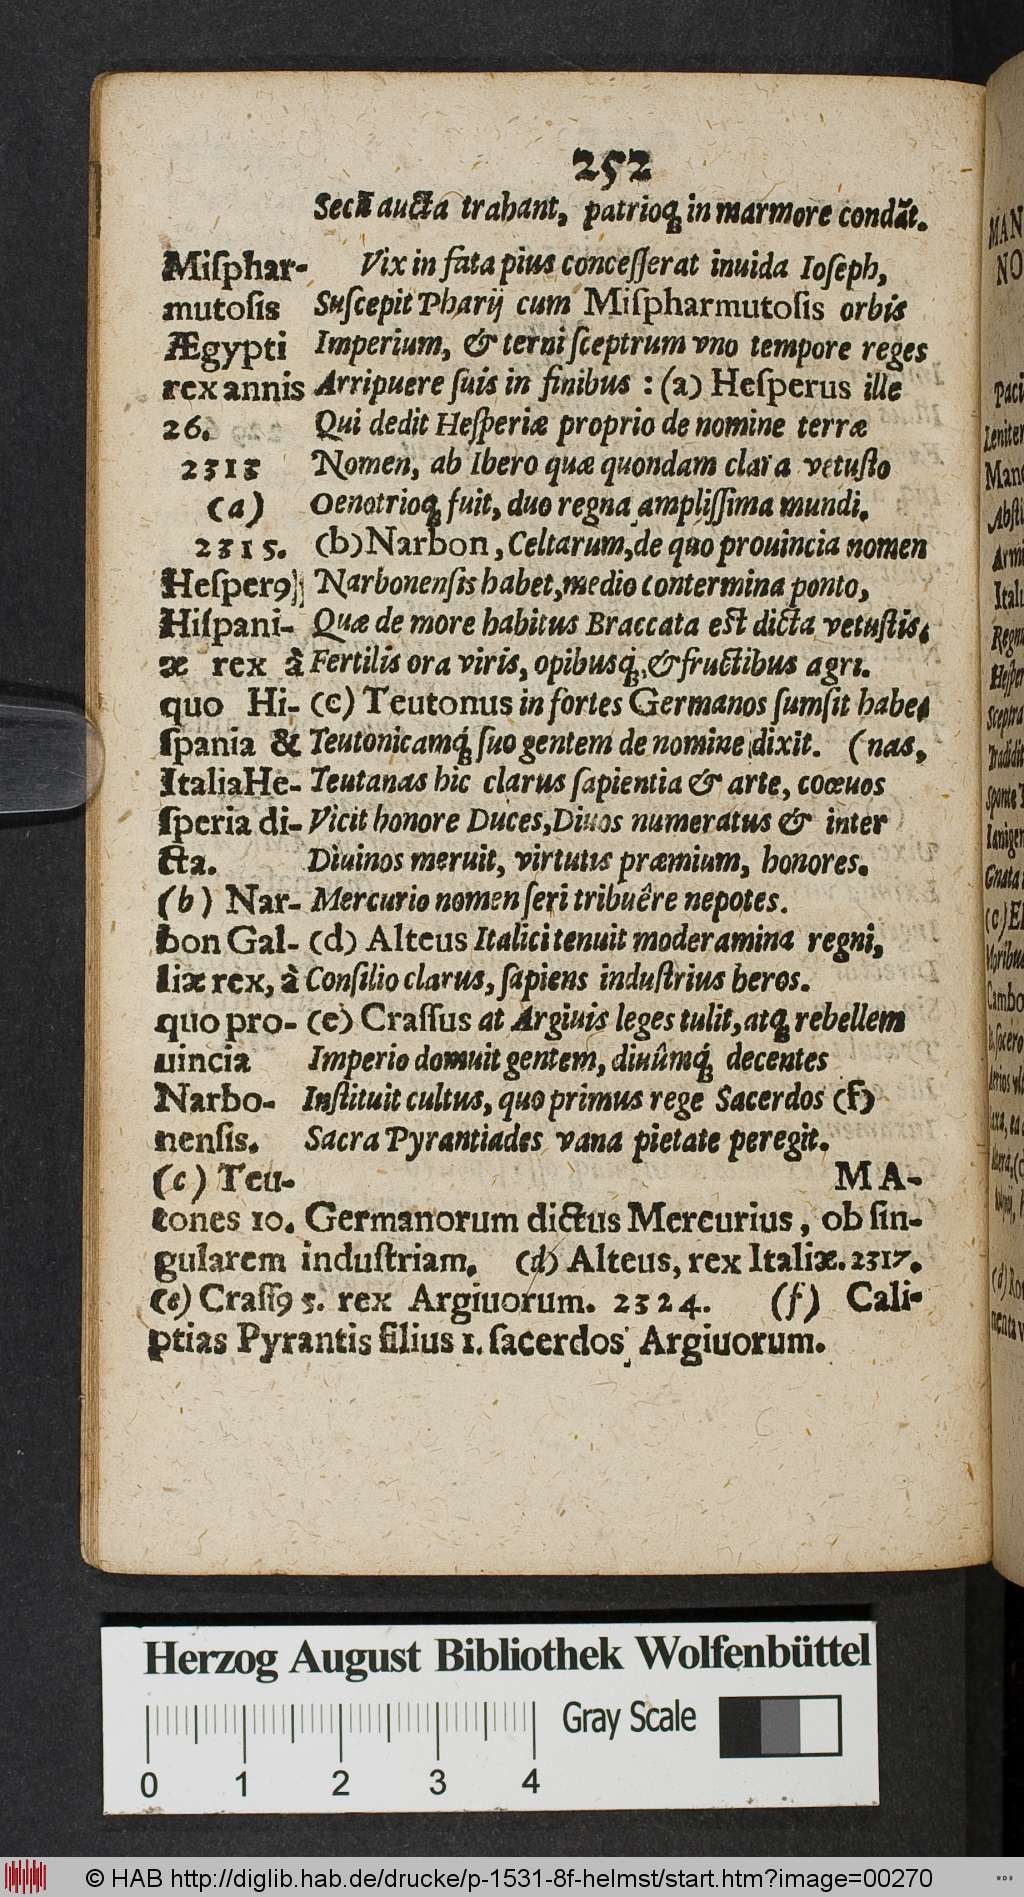 252
Secũ aucta trahant, patrioq; in marmore condãt.
Miſphar-
mutoſis
Ægypti
rex annis
26.
2313
(a)
2315.
Heſper9
Hiſpani-
æ rex à
quo Hi-
ſpania &
Italia He-
ſperia di-
cta.
(b) Nar-
bon Gal-
liæ rex, à
quo pro-
uincia
Narbo-
nenſis.
(c) Teu-
Vix in fata pius conceſſerat inuida Ioſeph,
Suſcepit Pharij cum Miſpharmutoſis orbis
Imperium, & terni ſceptrum vno tempore reges
Arripuere ſuis in finibus : (a) Heſperus ille
Qui dedit Heſperiæ proprio de nomine terræ
Nomen, ab Ibero quæ quondam clara vetuſto
Oenotrioq; fuit, duo regna ampliſſima mundi.
(b) Narbon, Celtarum, de quo prouincia nomen
Narbonenſis habet, medio contermina ponto,
Quæ de more habitus Braccata eſt dicta vetuſtis,
Fertilis ora viris, opibusq́;, & fructibus agri.
(c) Teutonus in fortes Germanos ſumſit habe-
Teutonicamq́; ſuo gentem de nomine dixit. (nas,
Teutanas hic clarus ſapientia & arte, coœuos
Vicit honore Duces, Diuos numeratus & inter
Diuinos meruit, virtutis præmium, honores.
Mercurio nomen ſeri tribuêre nepotes.
(d) Alteus Italici tenuit moderamina regni,
Conſilio clarus, ſapiens induſtrius heros.
(e) Craſſus at Argiuis leges tulit, atq; rebellem
Imperio domuit gentem, diuûmq́; decentes
Inſtituit cultus, quo primus rege Sacerdos (f)
Sacra Pyrantiades vana pietate peregit.
MA-
tones 10. Germanorum dictus Mercurius, ob ſin-
gularem induſtriam. (d) Alteus, rex Italiæ. 2317.
(e) Craſſ9 5. rex Argiuorum. 2324. (f) Cali-
ptias Pyrantis filius 1. ſacerdos Argiuorum.
MAN
NO
Herzog August Bibliothek Wolfenbüttel
Gray Scale
0 1 2 3 4
© HAB http://diglib.hab.de/drucke/p-1531-8f-helmst/start.htm?image=00270